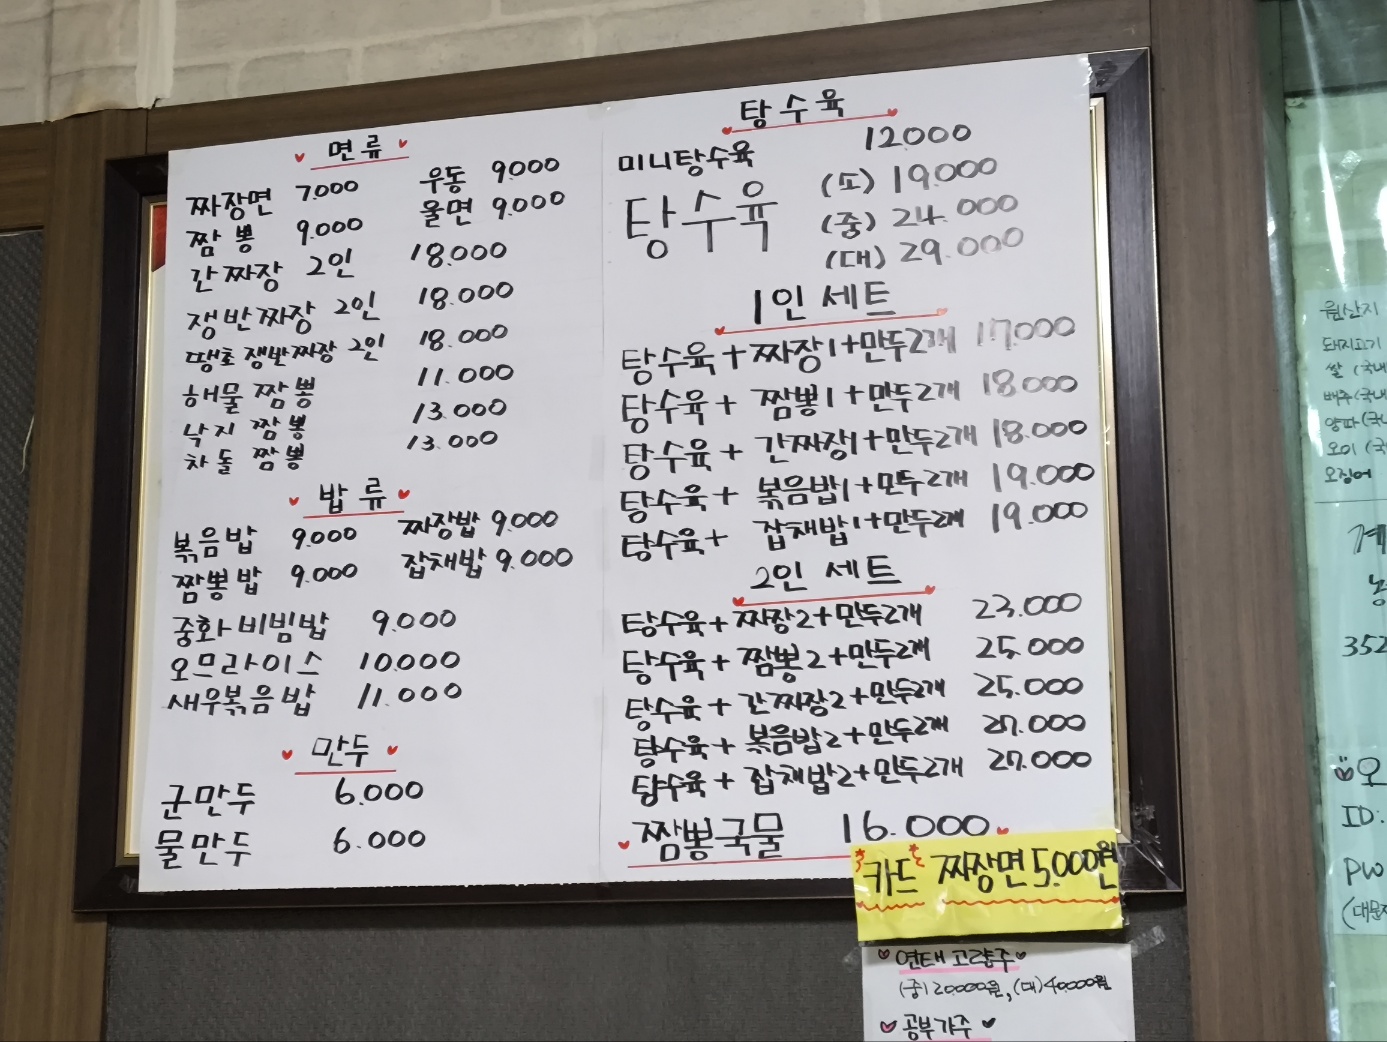 면류
짜장면 7.000 우동 9.000
짬뽕 9.000 울면 9.000
간짜장 2인 18.000
쟁반짜장 2인 18.000
땡초쟁반짜장 2인 18.000
해물짬뽕 11.000
낙지짬뽕 13.000
차돌짬뽕 13.000
밥류
볶음밥 9.000 짜장밥 9.000
짬뽕밥 9.000 잡채밥 9.000
중화비빔밥 9.000
오므라이스 10.000
새우볶음밥 11.000
만두
군만두 6.000
물만두 6.000
탕수육
미니탕수육 12.000
탕수육 (소) 19.000
(중) 24.000
(대) 29.000
1인 세트
탕수육+짜장1+만두2개 17.000
탕수육+짬뽕1+만두2개 18.000
탕수육+간짜장1+만두2개 18.000
탕수육+볶음밥1+만두2개 19.000
탕수육+잡채밥1+만두2개 19.000
2인 세트
탕수육+짜장2+만두2개 23.000
탕수육+짬뽕2+만두2개 25.000
탕수육+간짜장2+만두2개 25.000
탕수육+볶음밥2+만두2개 27.000
탕수육+잡채밥2+만두2개 27.000
짬뽕국물 16.000
카드 짜장면 5.000원
연태고량주
(중)20000원, (대)40000원
공부가주
원산지
돼지고기
쌀 (국내
배추(국내
양파(국내
오이 (국
오징어
352
ID:
PW
(대문자